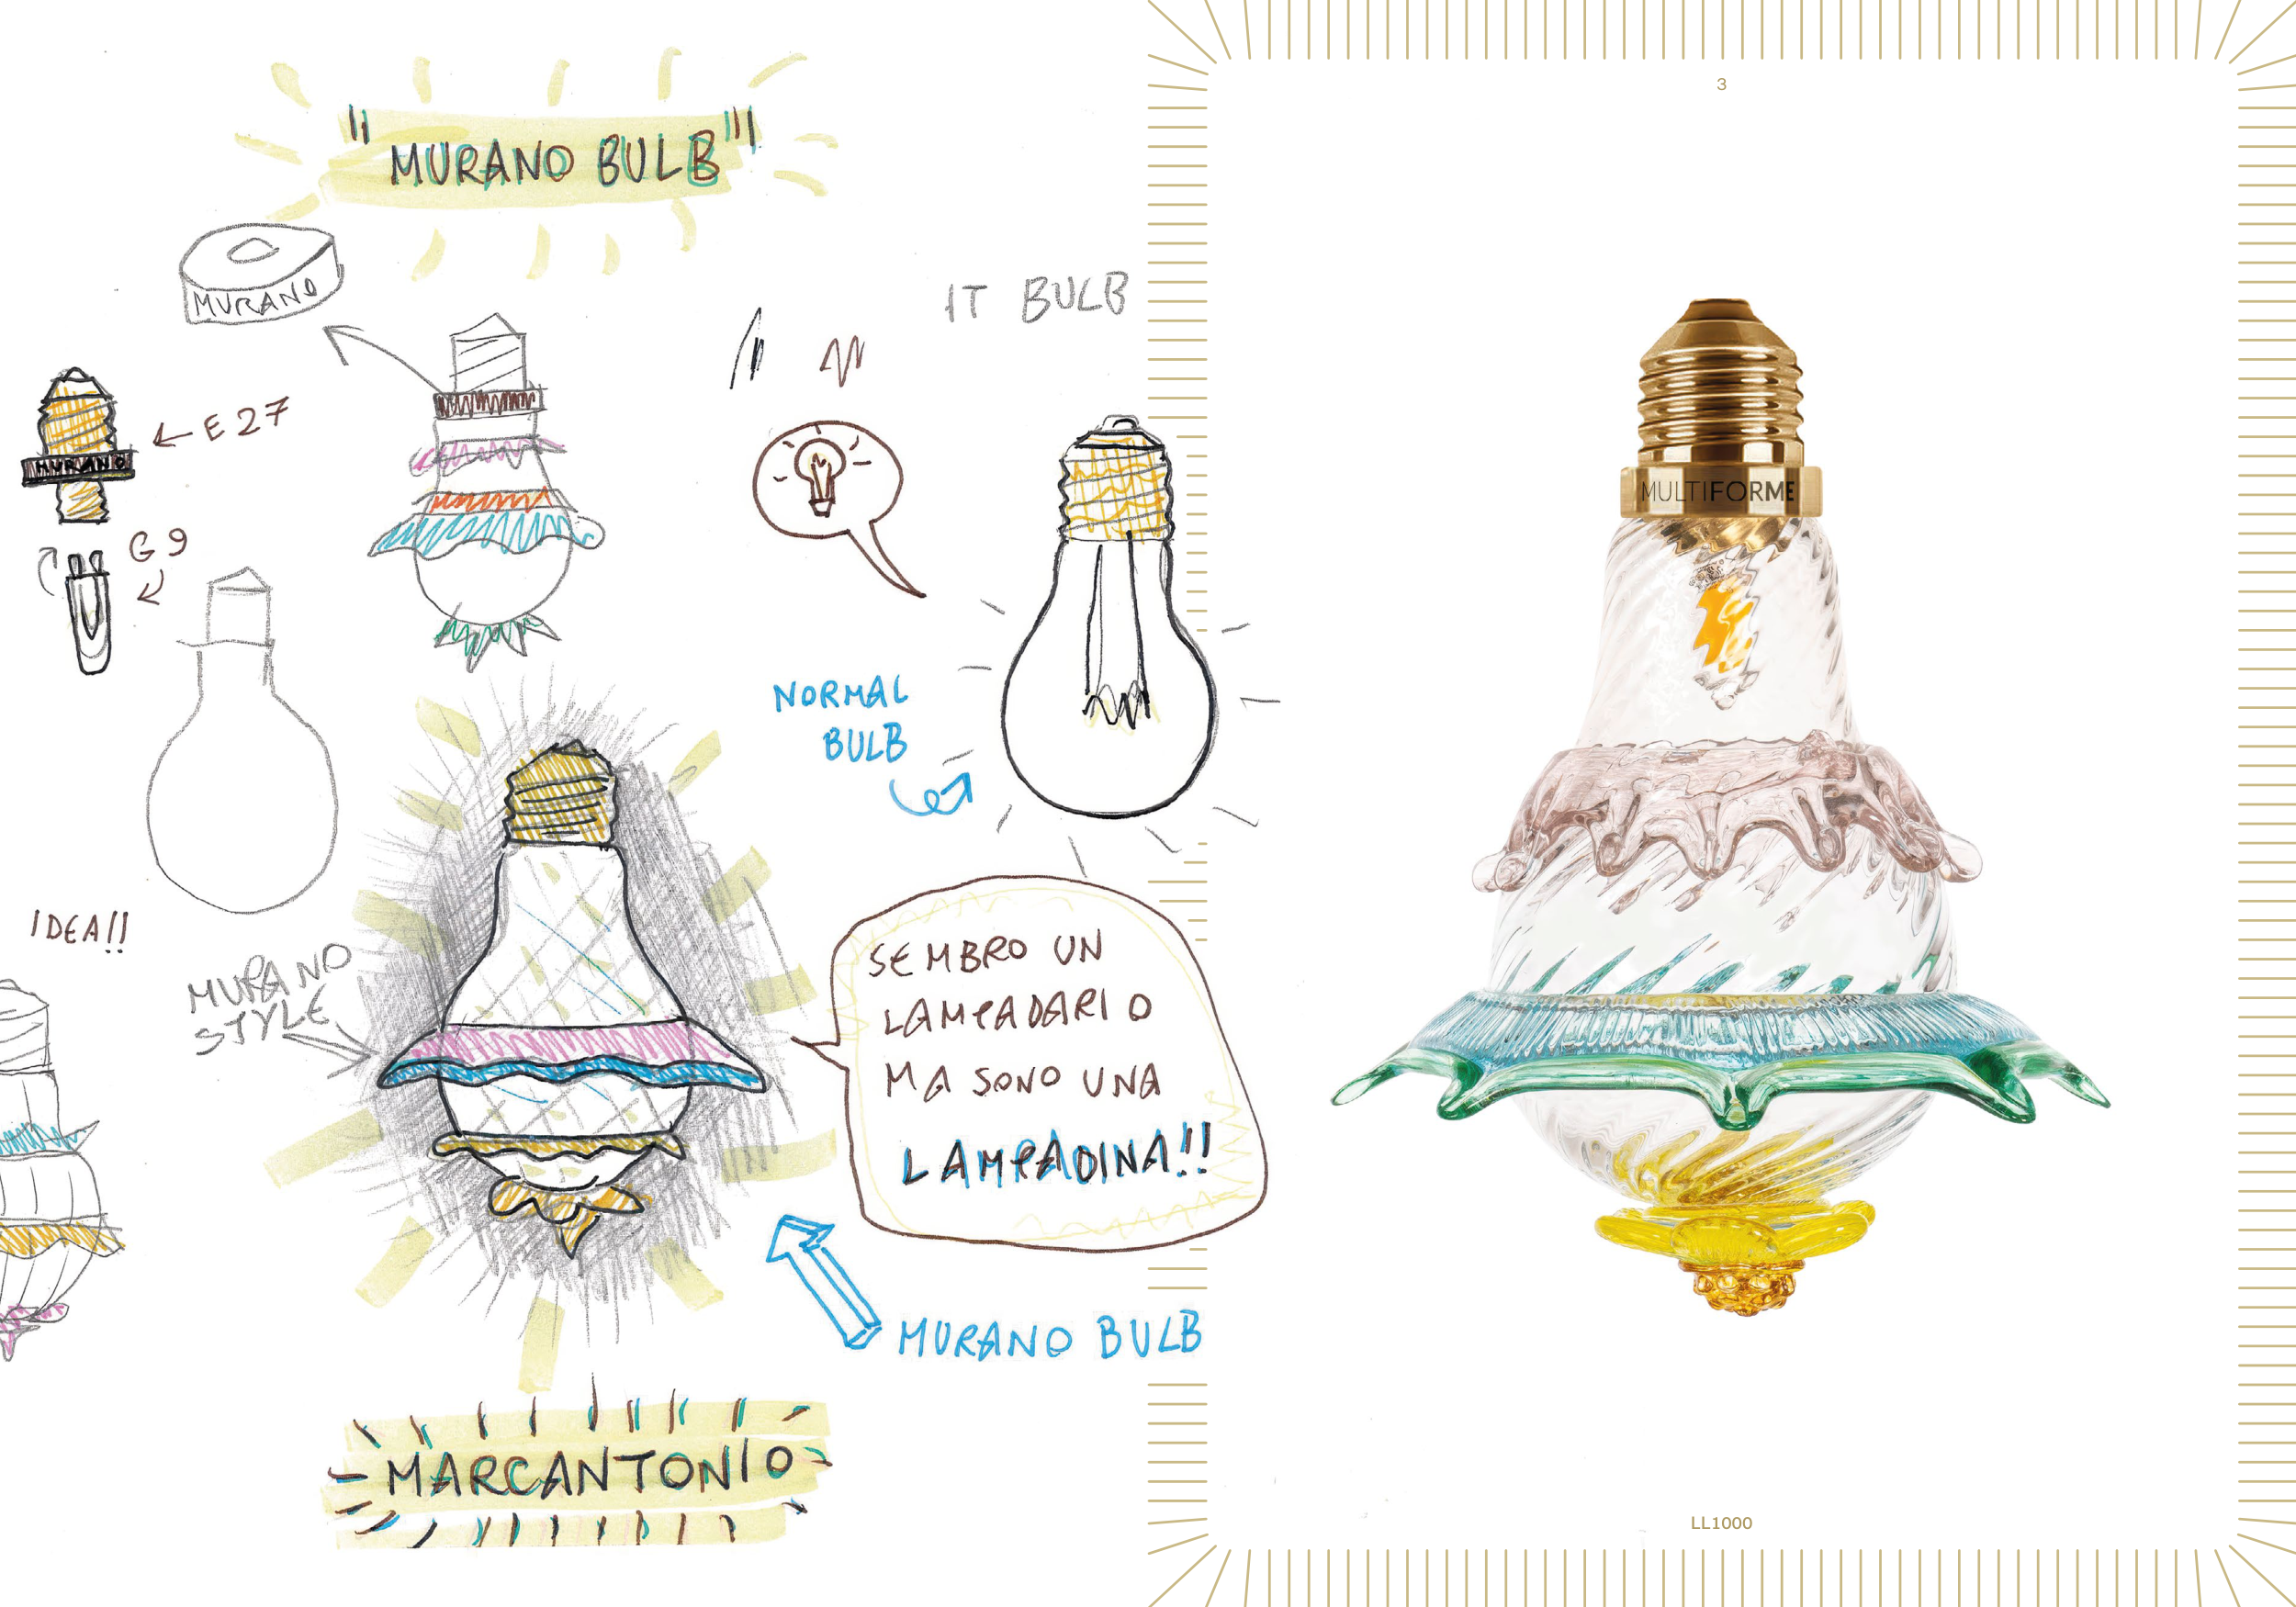 "MURANO BULB"
MURANO
IT BULB
E27
MURANO
G9
NORMAL
BULB
IDEA!!
MURANO
STYLE
SEMBRO UN
LAMPADARIO
MA SONO UNA
LAMPADINA!!
MURANO BULB
MARCANTONIO
3
MULTIFORME
LL1000